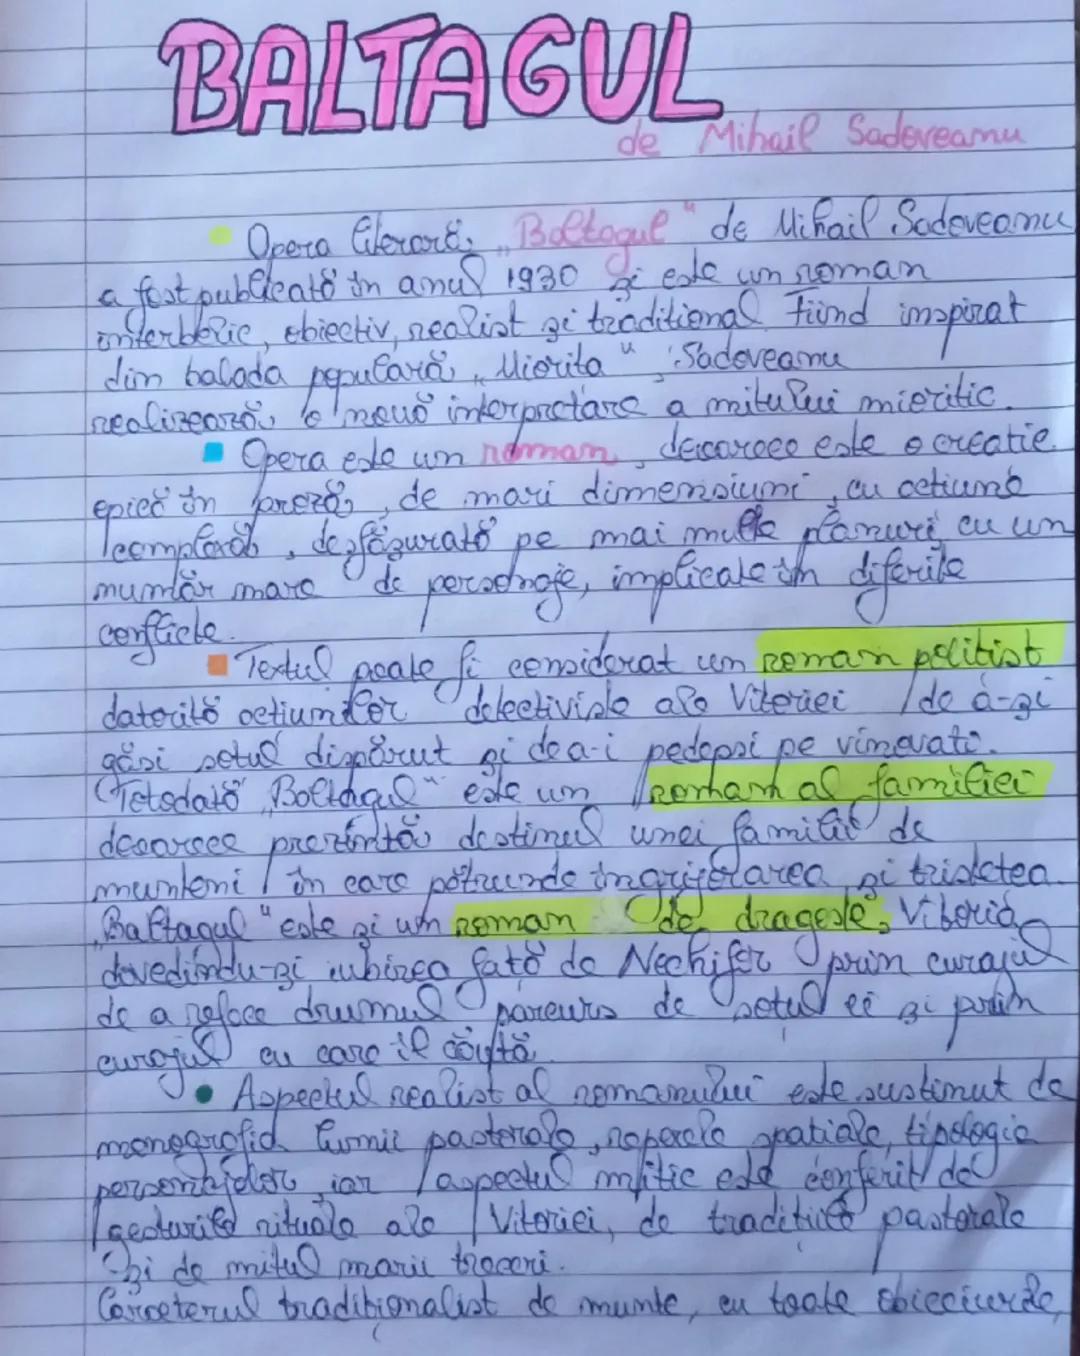 BALTAGUL
de Mihail Sadoveanu
Opera literară „Baltagul" de Mihail Sadoveanu
a fost publicată în anul 1930 și este un roman
interbelic, obiectiv, realist și traditional. Fiind inspirat
din balada populară „Miorita", Sadoveanu
realizează o nouă interpretare a mitului mioritic.
Opera este un roman, deoarece este o creatie
epică în proză, de mari dimensiuni, cu actiune
complexă, desfășurată pe mai multe planuri, cu un
număr mare de personaje, implicate în diferite
conflicte.
Textul poate fi considerat un roman politist
datorită actiunilor detectiviste ale Vitoriei de a-și
găsi sotul dispărut și de a-i pedepsi pe vinovati.
Totodată „Baltagul" este un roman al familiei
deoarece prezintă destinul unei familii de
munteni în care pătrunde îngrijorarea și tristetea.
„Baltagul" este și un roman de dragoste, Vitoria
dovedindu-și iubirea fată de Nechifor prin curajul
de a reface drumul parcurs de sotul ei și prin
curajul cu care îl căută.
Aspectul realist al romanului este sustinut de
monografia lumii pastorale, reperele spatiale, tipologia
personajelor, iar aspectul mitic este conferit de
gesturile rituale ale Vitoriei, de traditiile pastorale
și de mitul marii treceri.
Caracterul traditionalist de munte, cu toate obieciurile,